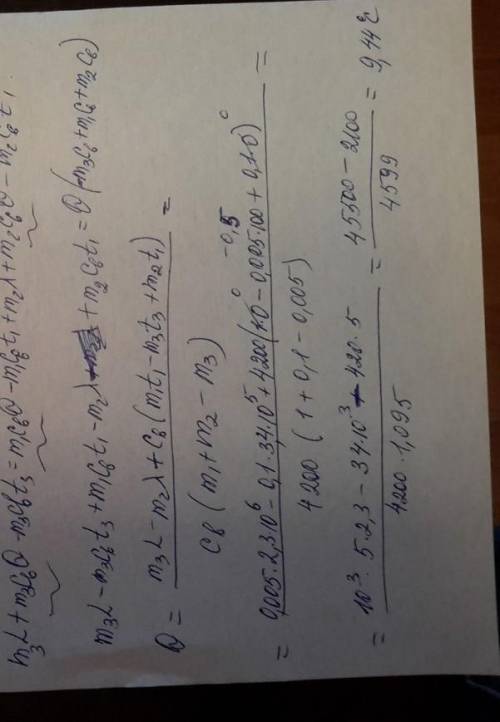 m₃L + m₃c_вθ - m₃c_вt₃ = m₁c_вθ - m₁c_вt₁ + m₂λ + m₂c_вθ - m₂c_вt₁
m₃L - m₃c_вt₃ + m₁c_вt₁ - m₂λ + m₂c_вt₁ = θ(-m₃c_в + m₁c_в + m₂c_в)
θ = (m₃L - m₂λ + c_в(m₁t₁ - m₃t₃ + m₂t₁)) / (c_в(m₁ + m₂ - m₃)) =
= (0,005·2,3·10⁶ - 0,1·3,4·10⁵ + 4200(1·0 - 0,005·100 + 0,1·0)) / (4200(1 + 0,1 - 0,005)) =
= (10³·5·2,3 - 34·10³ - 420·5) / (4200·1,095) = (45500 - 2100) / 4599 = 9,44